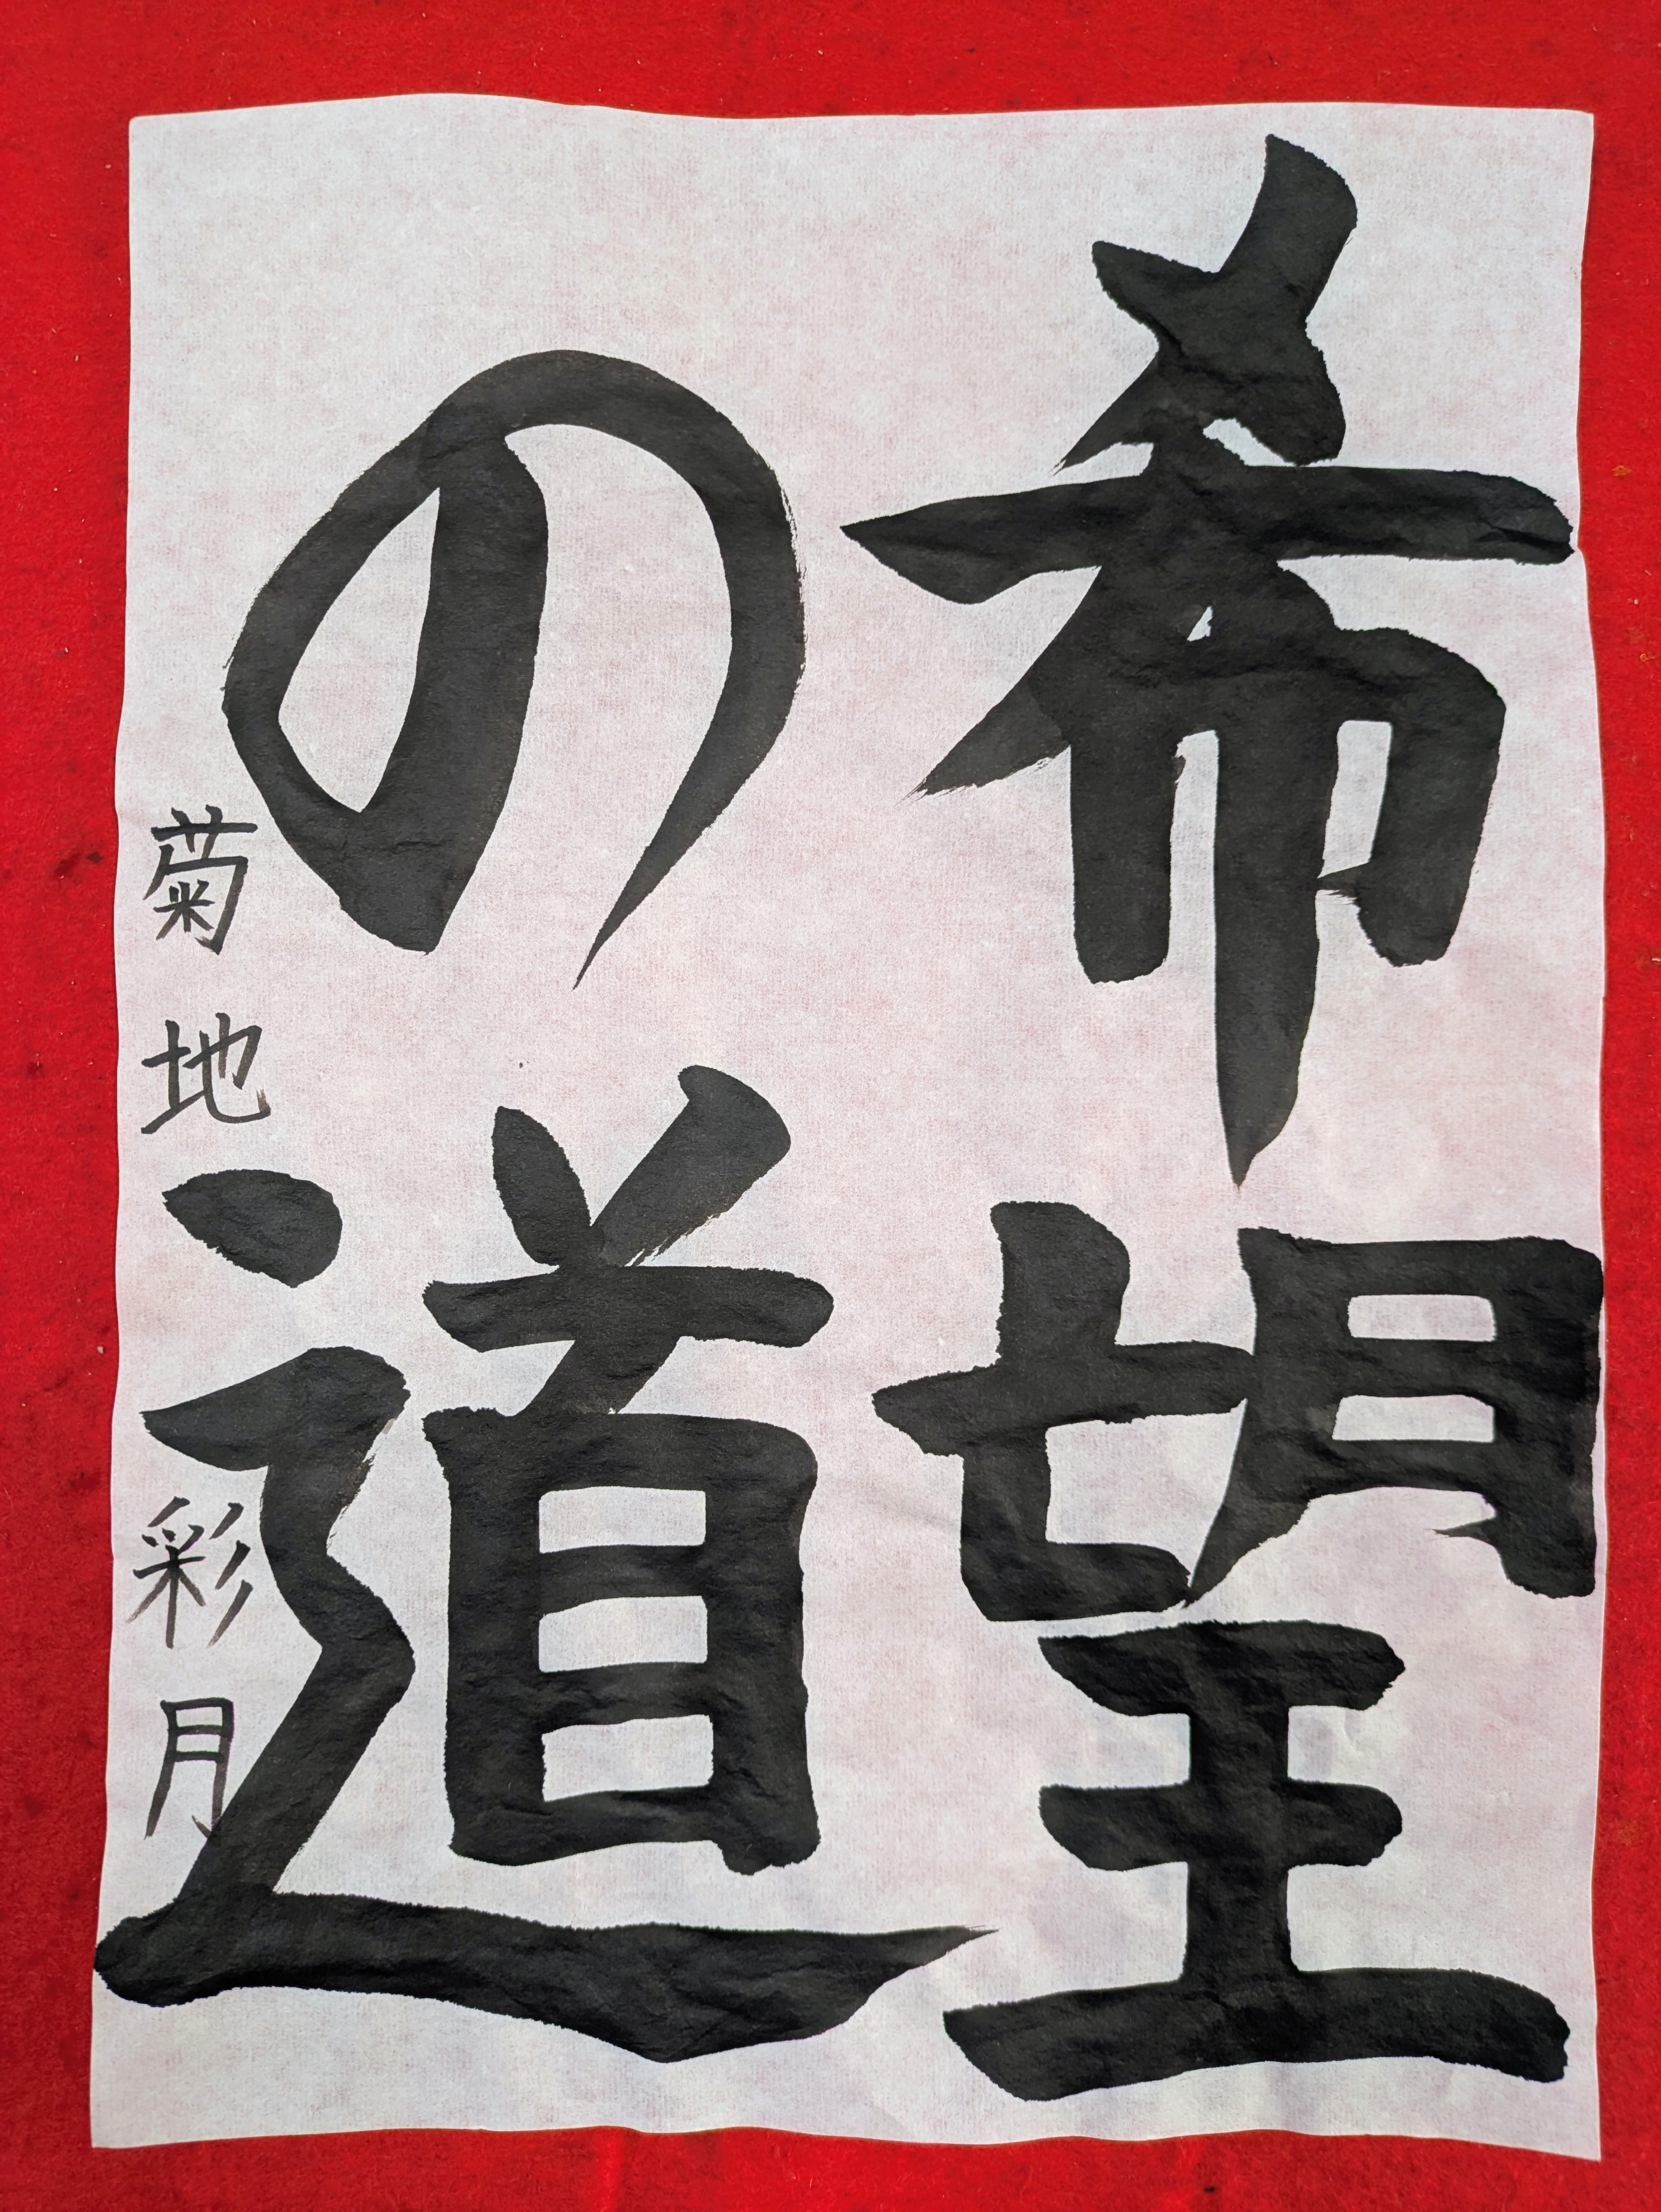 希望
の道
菊地彩月